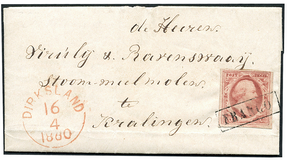 de Heeren
Virúly & Ravenswaaij
Stoom meelmolen
te
Kralingen
DIRKSLAND
16
4
1880
FRANCO